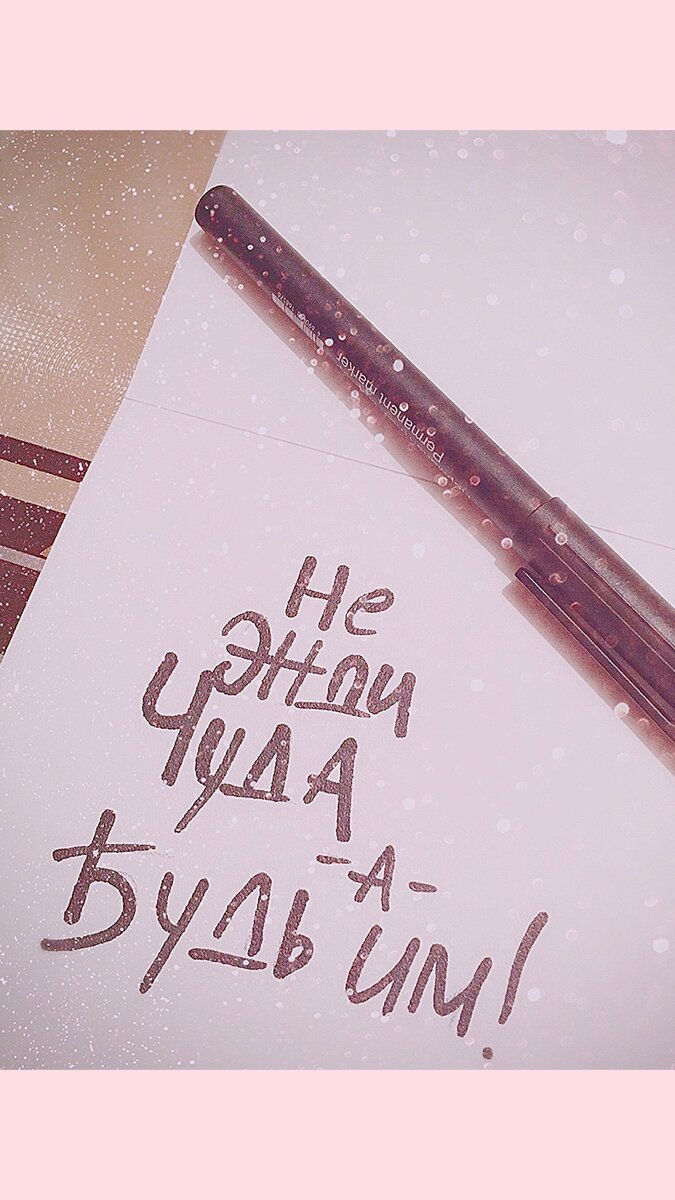 Permanent marker
Не
жди
ЧУДА
-А-
Будь им!